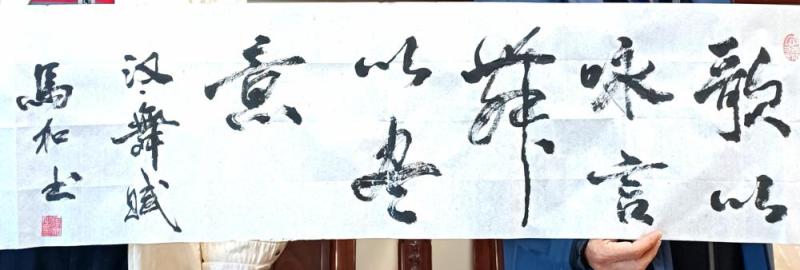 歌以
咏言
舞
以尽
意
汉、舞赋
馬和书